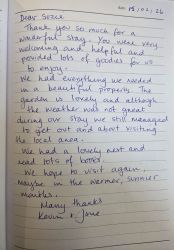 15/02/26
Dear Suzie
Thank you so much for a
wonderful stay. You were very
welcoming and helpful and
provided lots of goodies for us
to enjoy.
We had everything we needed
in a beautiful property. The
garden is lovely and although
the weather was not great
during our stay we still managed
to get out and about visiting
the local area.
We had a lovely rest and
read lots of books.
We hope to visit again,
maybe in the warmer, summer
months.
Many thanks
Kevin &